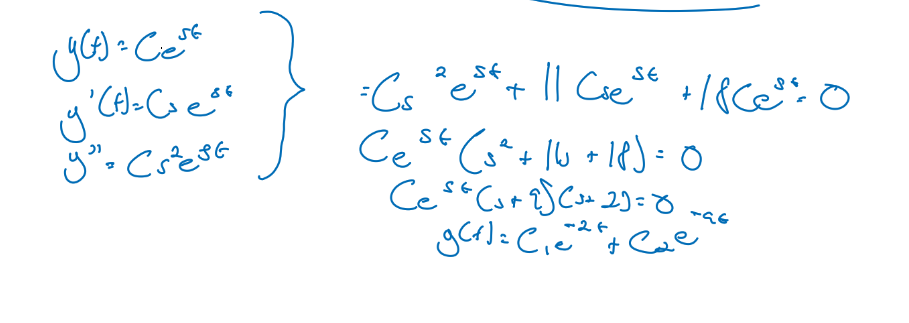 y(t) = Ce^{st}
y'(t) = Cs e^{st}
y'' = Cs^2e^{st}
= Cs^2e^{st} + 11 Cse^{st} + 18Ce^{st} = 0
Ce^{st} (s^2 + 11s + 18) = 0
Ce^{st} (s + 9)(s + 2) = 0
y(t) = C_1e^{-2t} + C_2e^{-9t}